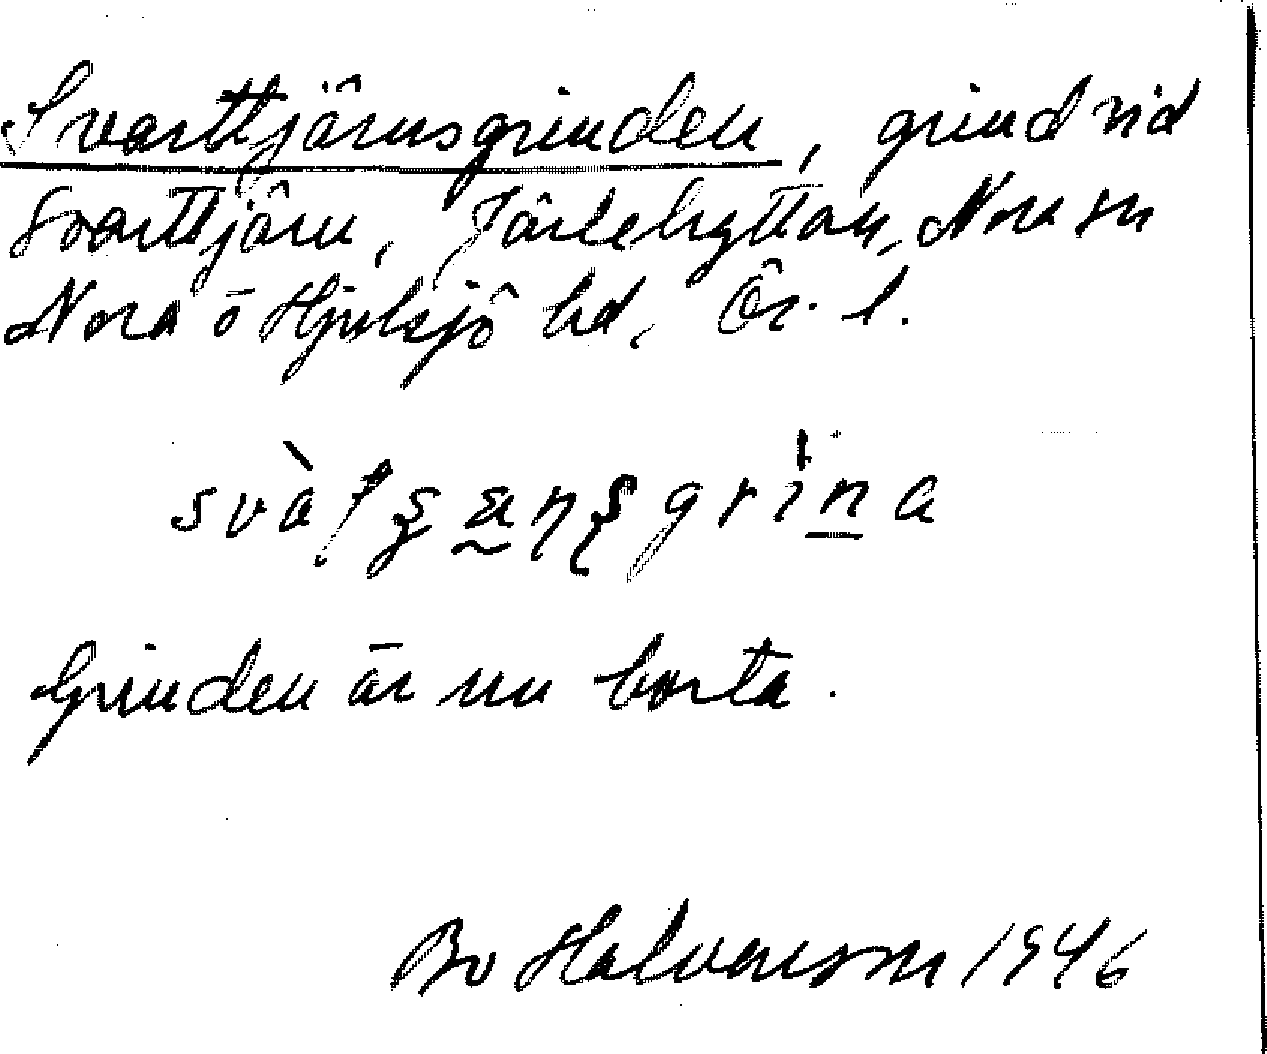 Svarttjärnsgrinden, grind vid
Svarttjärn, Järlehyttan, Nora sn
Nora o Hjulsjö hd, Ör. l.
Grinden är nu borta.
Bo Halvarsson 1946